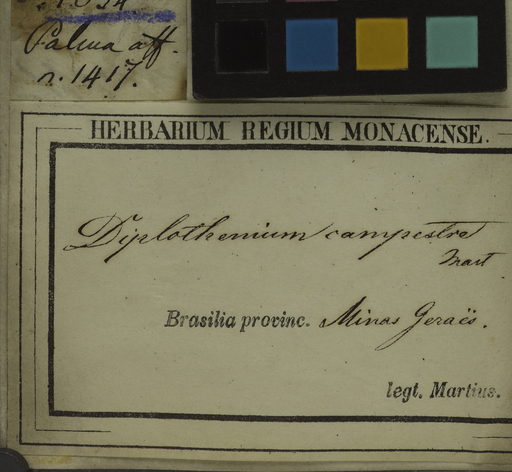 Palma aff.
n. 1417.
HERBARIUM REGIUM MONACENSE.
Diplothenium campestre
Mart
Brasilia provinc. Minas Geraës.
legt. Martius.